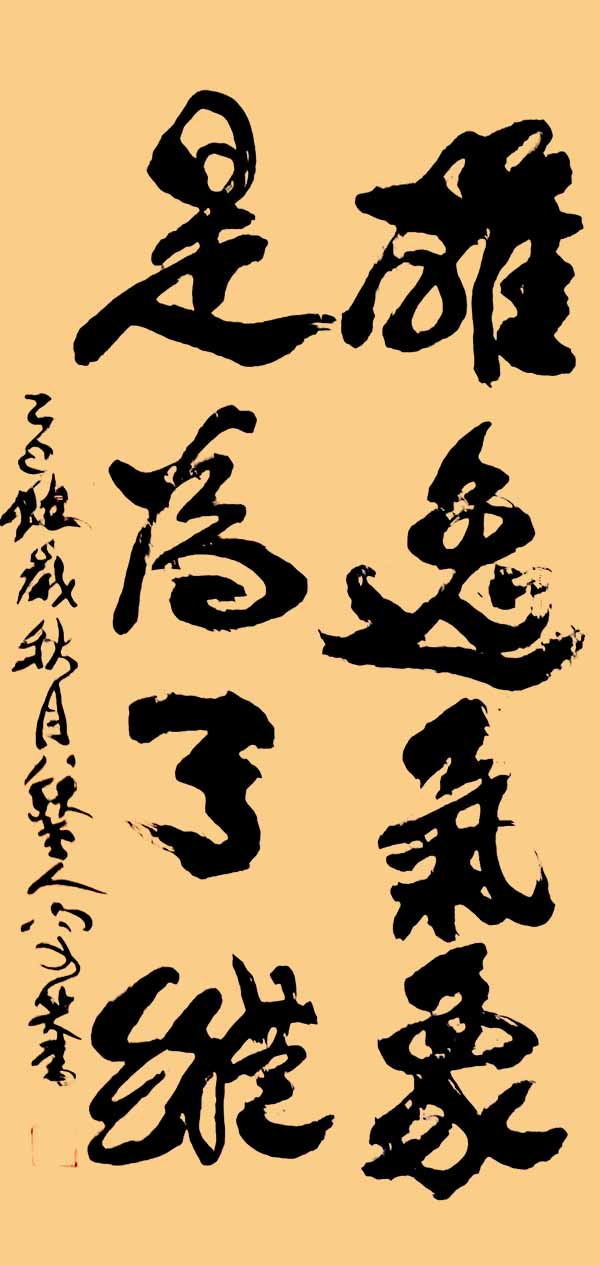 雄逸氣象
是為了縱
乙巳蛇歲秋月人書